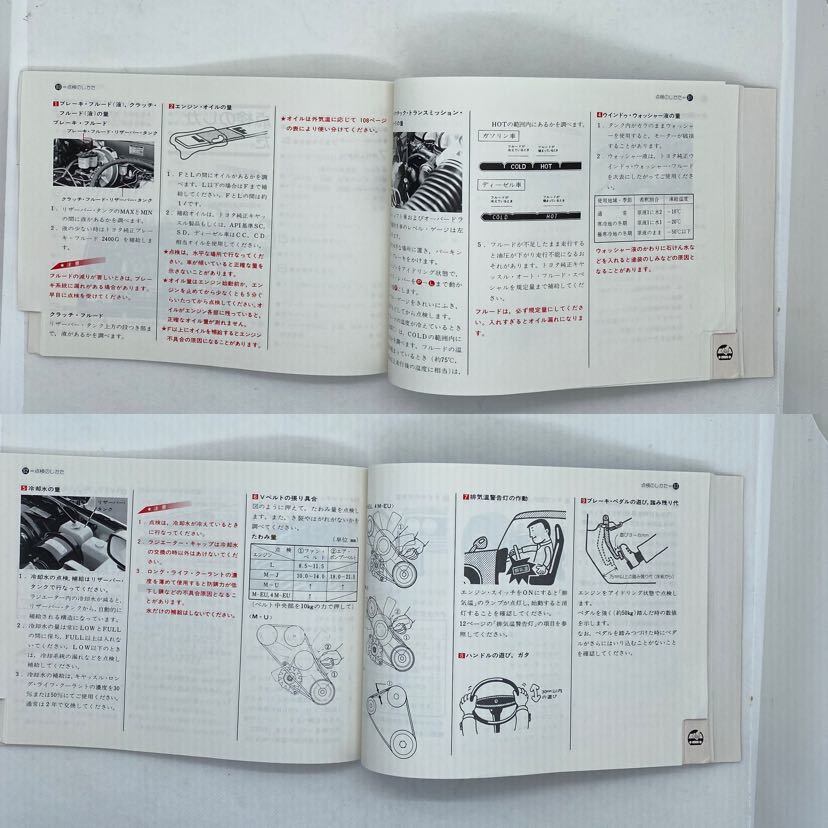 80=点検のしかた
1 ブレーキ・フルード(液)、クラッチ・
フルード(液)の量
ブレーキ・フルード
ブレーキ・フルード・リザーバー・タンク
クラッチ・フルード・リザーバー・タンク
1．リザーバー・タンクのMAXとMIN
の間に液があるかを調べます。
2．液の少ない時はトヨタ純正ブレー
キ・フルード2400Gを補給しま
す。
★注意
フルードの減りが著しいときは、ブレー
キ系統に漏れがある場合があります。
早目に点検を受けてください。
クラッチ・フルード
リザーバー・タンク上方の段つき部ま
で、液があるかを調べます。
2 エンジン・オイルの量
1．FとLの間にオイルがあるかを調
べます。L以下の場合はFまで補
給してください。FとLの間は約
1ℓです。
2．補給オイルは、トヨタ純正キャッ
スル製品もしくは、API基準SC、
SD、ディーゼル車はCC、CD
相当オイルを使用してください。
★点検は、水平な場所で行なってくだ
さい。車が傾いていると正確な量を
示さないことがあります。
★オイル量はエンジン始動前か、エン
ジンを止めてから少なくとも5分ぐ
らいたってから点検してください。オ
イルがエンジン各部に残っていると、
正確なオイル量が測れません。
★F以上にオイルを補給するとエンジン
不具合の原因になることがあります。
★オイルは外気温に応じて108ページ
の表により使い分けてください。
点検のしかた=81
チック・トランスミッション・
の量
スト車)およびオーバードラ
車のレベル・ゲージは左
な場所に置き、パーキン
レーキをかけます。
をアイドリング状態で、
レバーをP→Lまで動か
に戻します。
ゲージをきれいにふき、
てから点検します。
の温度が冷えているとき
は、COLDの範囲内に
を調べます。フルードの温
まっているとき(約75℃、
走行後の温度に相当)は、
HOTの範囲内にあるかを調べます。
ガソリン車
フルードが
冷えているとき
フルードが
暖まっているとき
COLD HOT
ディーゼル車
フルードが
冷えているとき
フルードが
暖まっているとき
COLD HOT
5．フルードが不足したまま走行する
と油圧が下がり走行不能になるお
それがあります。トヨタ純正キャ
ッスル・オート・フルード・スペシ
ャルを規定量まで補給してくださ
い。
フルードは、必ず規定量にしてくださ
い。入れすぎるとオイル漏れになりま
す。
4 ウインドゥ・ウォッシャー液の量
1．タンク内がカラのままウォッシャ
ーを使用すると、モーターが破損
することがあります。
2．ウォッシャー液は、トヨタ純正ウ
インドゥ・ウォッシャー・フルード
を次表にしたがってご使用くださ
い。
使用地域・季節 希釈割合 凍結温度
通常 原液1に水2 −10℃
寒冷地の冬期 原液1に水1 −20℃
極寒冷地の冬期 原液のまま −50℃以下
ウォッシャー液のかわりに石けん水な
どを入れると塗装のしみなどの原因と
なることがあります。
82=点検のしかた
5 冷却水の量
リザーバー・
タンク
1．冷却水の点検、補給はリザーバー・
タンクで行なってください。
ラジエーター内の冷却水が減ると、
リザーバー・タンクから、自動的に
補給される構造になっています。
2．冷却水の量は常にLOWとFULL
の間に保ち、FULL以上は入れな
いでください。LOW以下のとき
は、冷却系統の漏れなどを点検し
補給してください。
3．冷却水の補給は、キャッスル・ロン
グ・ライフ・クーラントの濃度を30
％または50％にてご使用ください。
通常は2年で交換してください。
★注意
1．点検は、冷却水が冷えているとき
に行なってください。
2．ラジエーター・キャップは冷却水
の交換の時以外はあけないでくだ
さい。
3．ロング・ライフ・クーラントの濃
度を薄めて使用すると防錆力が低
下し錆などの不具合原因となるこ
とがあります。
水だけの補給はしないでください。
6 Vベルトの張り具合
図のように押えて、たわみ量を点検し
ます。また、き裂やはがれがないかを
調べてください。
たわみ量 (単位 ㎜)
点検
エンジン
①ファン・
ベルト
②エア・
ポンプベルト
L 8.5〜11.5
M—J 10.0〜14.0 18.0〜21.0
M—U ↑ ↑
M-EU, 4M-EU ↑
(ベルト中央部を10kgの力で押して)
(M・U)
点検のしかた=83
EU, 4M-EU)
7 排気温警告灯の作動
エンジン・スイッチをONにすると「排
気温」のランプが点灯し、始動すると消
灯することを確認してください。
12ページの「排気温警告灯」の項目を参
照してください。
8 ハンドルの遊び、ガタ
30mm以内
の遊び
9 ブレーキ・ペダルの遊び、踏み残り代
エンジンをアイドリング状態で点検し
ます。
ペダルを強く(約50kg)踏んだ時の数値
を示します。
なお、ペダルを踏みつづけた時にペダ
ルがさらにはいり込むことがないこと
を確認してください。